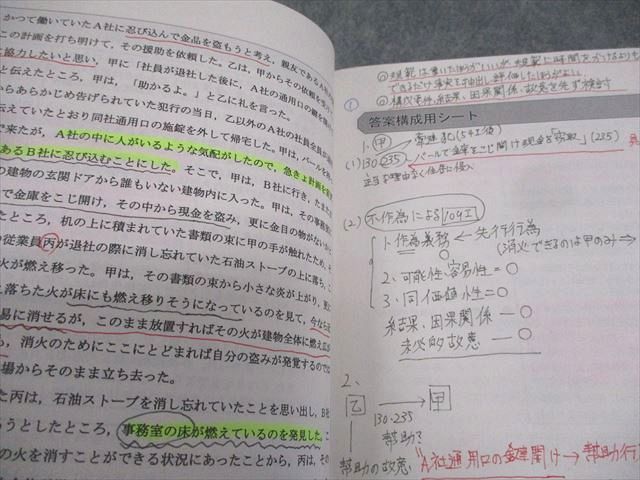 かつて働いていたA社に忍び込んで金品を盗もうと考え，親友であるA社の
この計画を打ち明けて，その援助を依頼した。乙は，甲からその依頼を受け
協力したいと思い，甲に「社員が退社した後に，A社の通用口の鍵を開け
と伝えたところ，甲は，「助かるよ。」と乙に礼を言った。
らあらかじめ告げられていた犯行の当日，乙以外のA社の社員全員が
伝えていたとおり同社通用口の施錠を外して帰宅した。甲は，バールを
で来たが，A社の中に人がいるような気配がしたので，急きょ計画を
あるB社に忍び込むことにした。そこで，甲は，B社に行き，たまた
の建物の玄関ドアから誰もいない建物内に入った。甲は，その事務室
で金庫をこじ開け，その中から現金を盗み，更に金目の物がないか
たところ，机の上に積まれていた書類の束に甲の手が触れたため，そ
の従業員丙が退社の際に消し忘れていた石油ストーブの上に落ち，こ
火が燃え移った。甲は，その書類の束から小さな炎が上がり，更に
落ちた火が床にも燃え移りそうになっているのを見て，今なら
易に消せるが，このまま放置すればその火が建物全体に燃え広が
も，消火のためにここにとどまれば自分の盗みが発覚するのでは
場からそのまま立ち去った。
た丙は，石油ストーブを消し忘れていたことを思い出し，B社
ろうとしたところ，事務室の床が燃えているのを発見した。
の火を消すことができる状況にあったことから，丙は，その
①
◎規範は書いたほうがいいが，規範に時間をかけるよりも
できるだけ事実を抽出し評価したほうがよい
◎構成要件，結果，因果関係，故意を先ず検討
答案構成用シート
1. 甲
(1) 130 235 バールで金庫をこじ開け現金を「窃取」(235)
正当な理由なく住居に侵入
(2) 不作為による109Ⅰ
1. 作為義務 ← 先行行為
(消火できるのは甲のみ→
2. 可能性・容易性＝○
3. 同価値性＝○
結果、因果関係 ― ○
未必的故意 ― ○
2、
乙 → 甲
130・235
幇助？
幇助の故意 "A社通用口の鍵開け → 幇助行